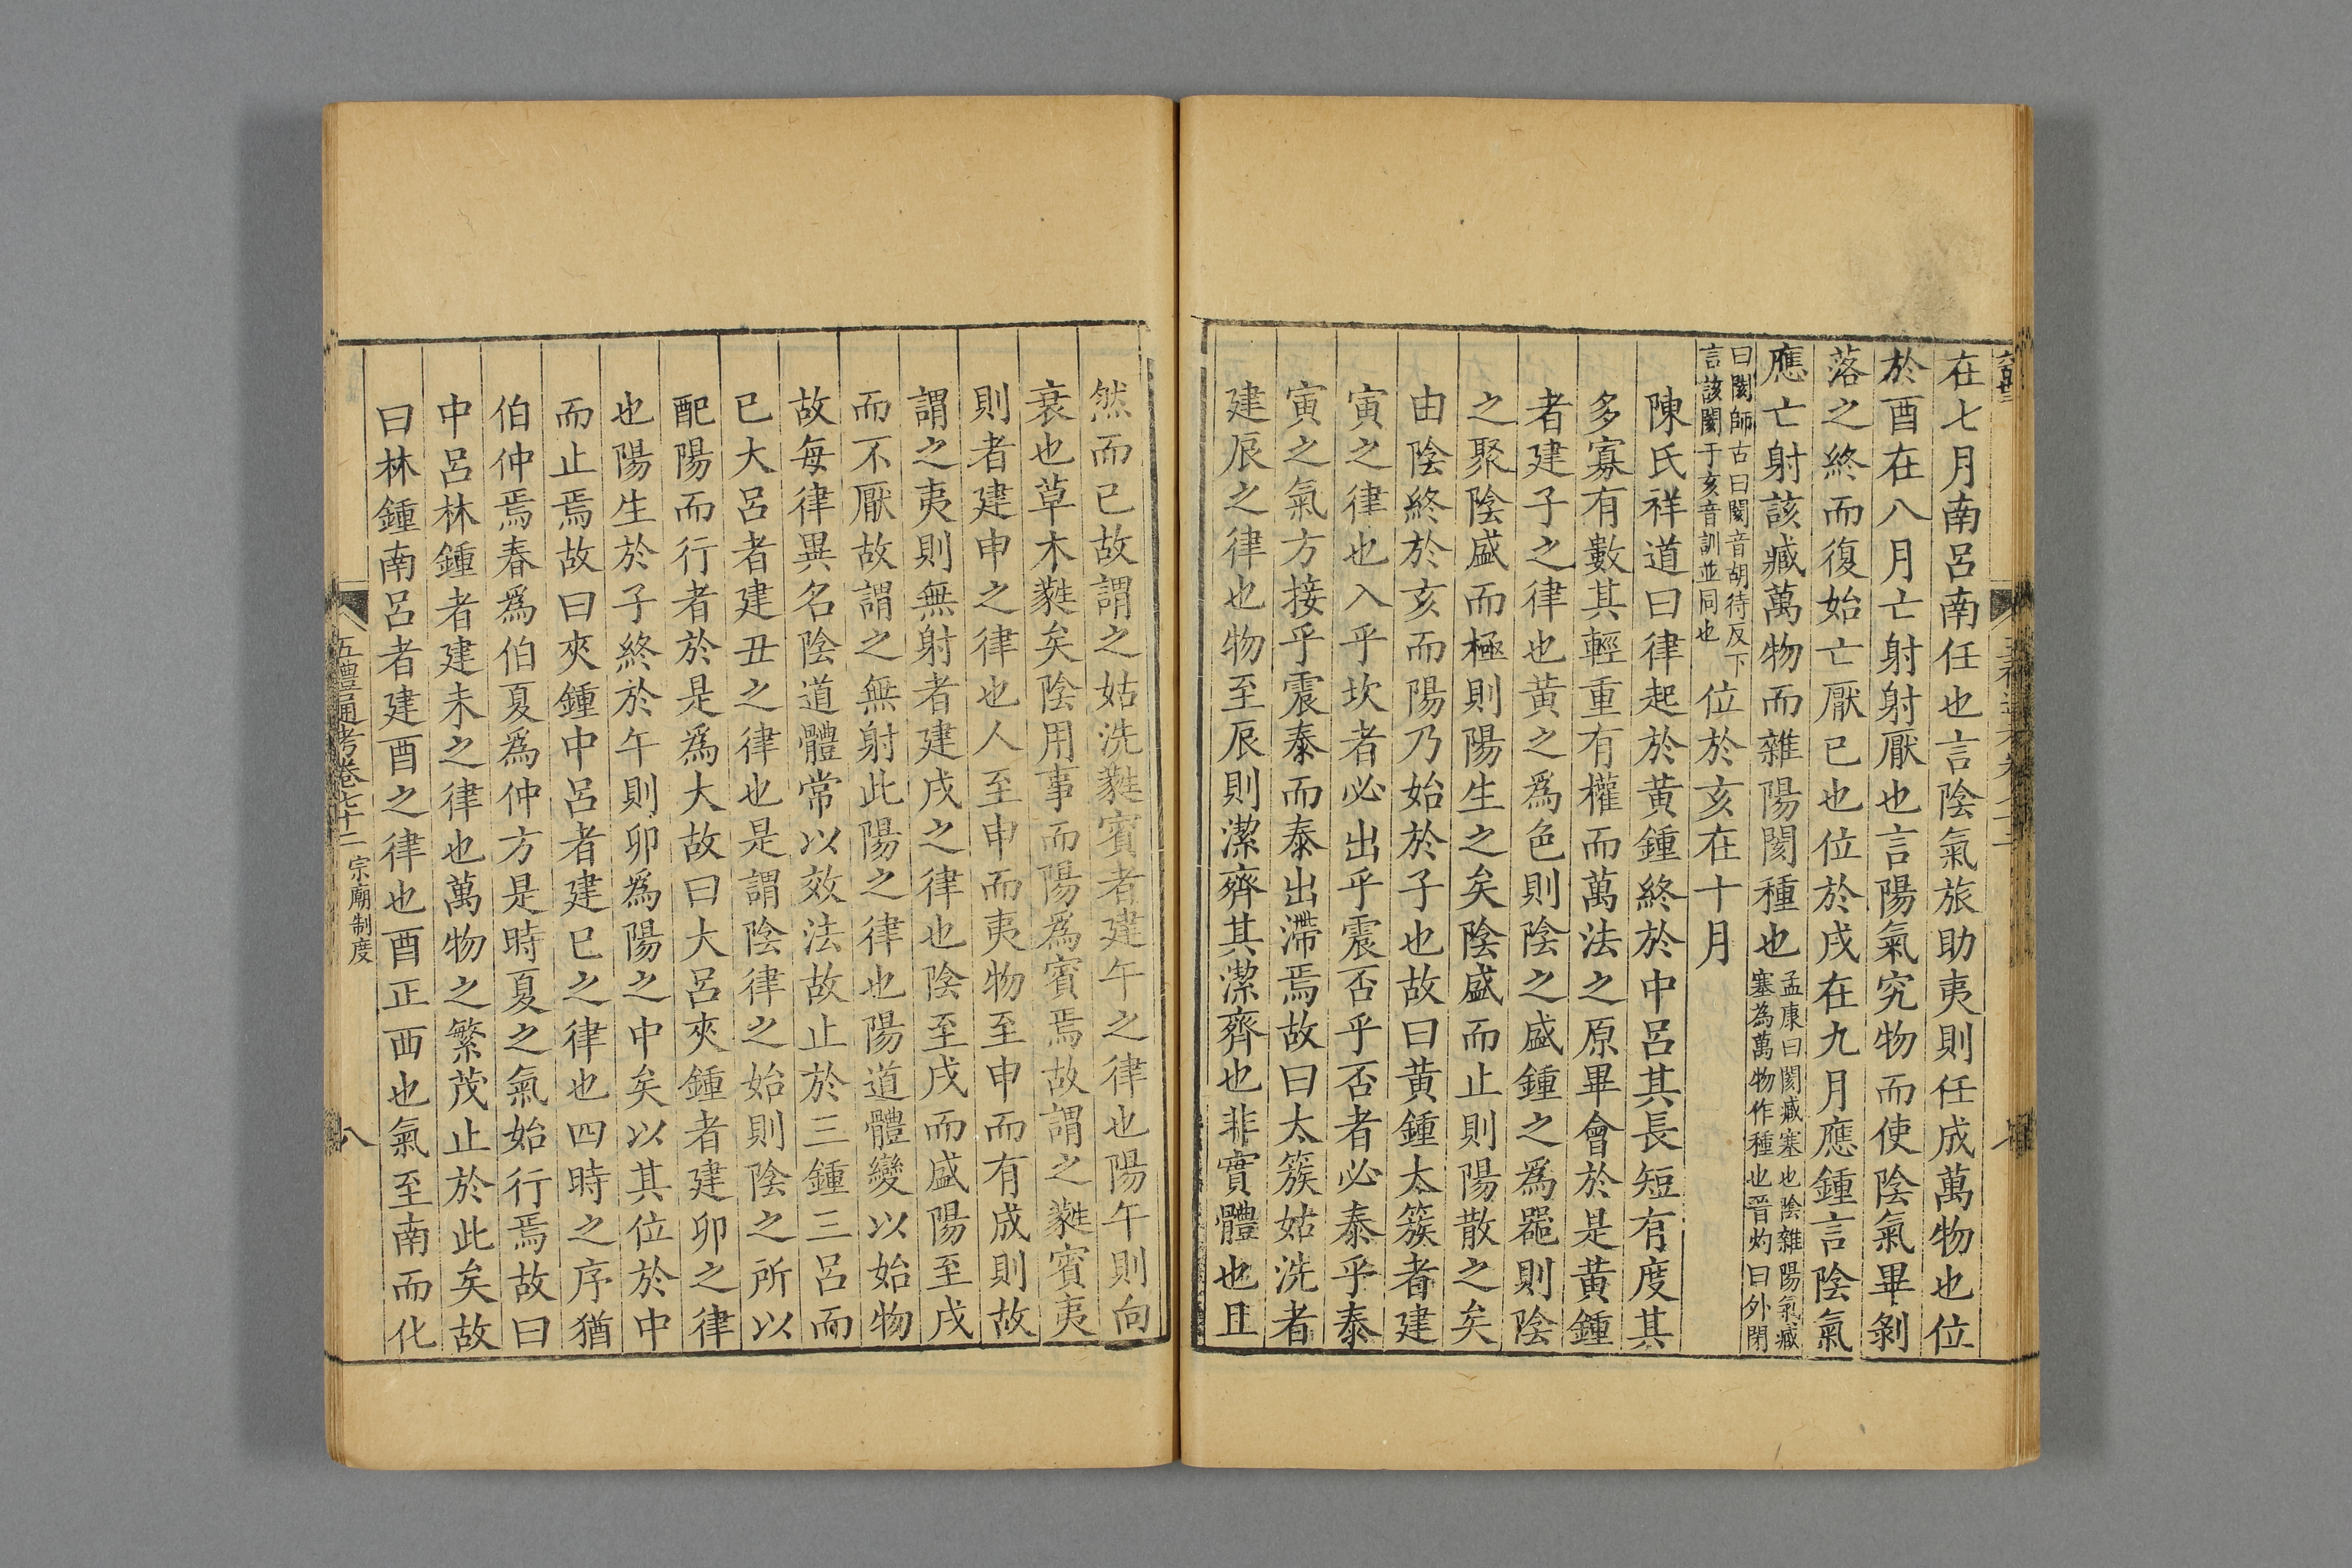 在七月南呂南任也言陰氣旅助夷則任成萬物也位
於酉在八月亡射射厭也言陽氣究物而使陰氣畢剝
落之終而復始亡厭已也位於戌在九月應鍾言陰氣
應亡射該臧萬物而雜陽閡種也
孟康曰閡臧塞也陰雜陽氣臧
塞為萬物作種也晉灼曰外閉
曰閡師古曰閡音胡待反下
言該閡于亥音訓並同也
位於亥在十月
陳氏祥道曰律起於黃鍾終於中呂其長短有度其
多寡有數其輕重有權而萬法之原畢會於是黃鍾
者建子之律也黃之爲色則陰之盛鍾之爲器則陰
之聚陰盛而極則陽生之矣陰盛而止則陽散之矣
由陰終於亥而陽乃始於子也故曰黃鍾太簇者建
寅之律也入乎坎者必出乎震否乎否者必泰乎泰
寅之氣方接乎震泰而泰出滯焉故曰太簇姑洗者
建辰之律也物至辰則潔齊其潔齊也非實體也且
然而已故謂之姑洗蕤賓者建午之律也陽午則向
衰也草木蕤矣陰用事而陽爲賓焉故謂之蕤賓夷
則者建申之律也人至申而夷物至申而有成則故
謂之夷則無射者建戌之律也陰至戌而盛陽至戌
而不厭故謂之無射此陽之律也陽道體變以始物
故每律異名陰道體常以效法故止於三鍾三呂而
已大呂者建丑之律也是謂陰律之始則陰之所以
配陽而行者於是爲大故曰大呂夾鍾者建卯之律
也陽生於子終於午則卯爲陽之中矣以其位於中
而止焉故曰夾鍾中呂者建巳之律也四時之序猶
伯仲焉春爲伯夏爲仲方是時夏之氣始行焉故曰
中呂林鍾者建未之律也萬物之繁茂止於此矣故
曰林鍾南呂者建酉之律也酉正西也氣至南而化
五禮通考卷七十二 宗廟制度 八